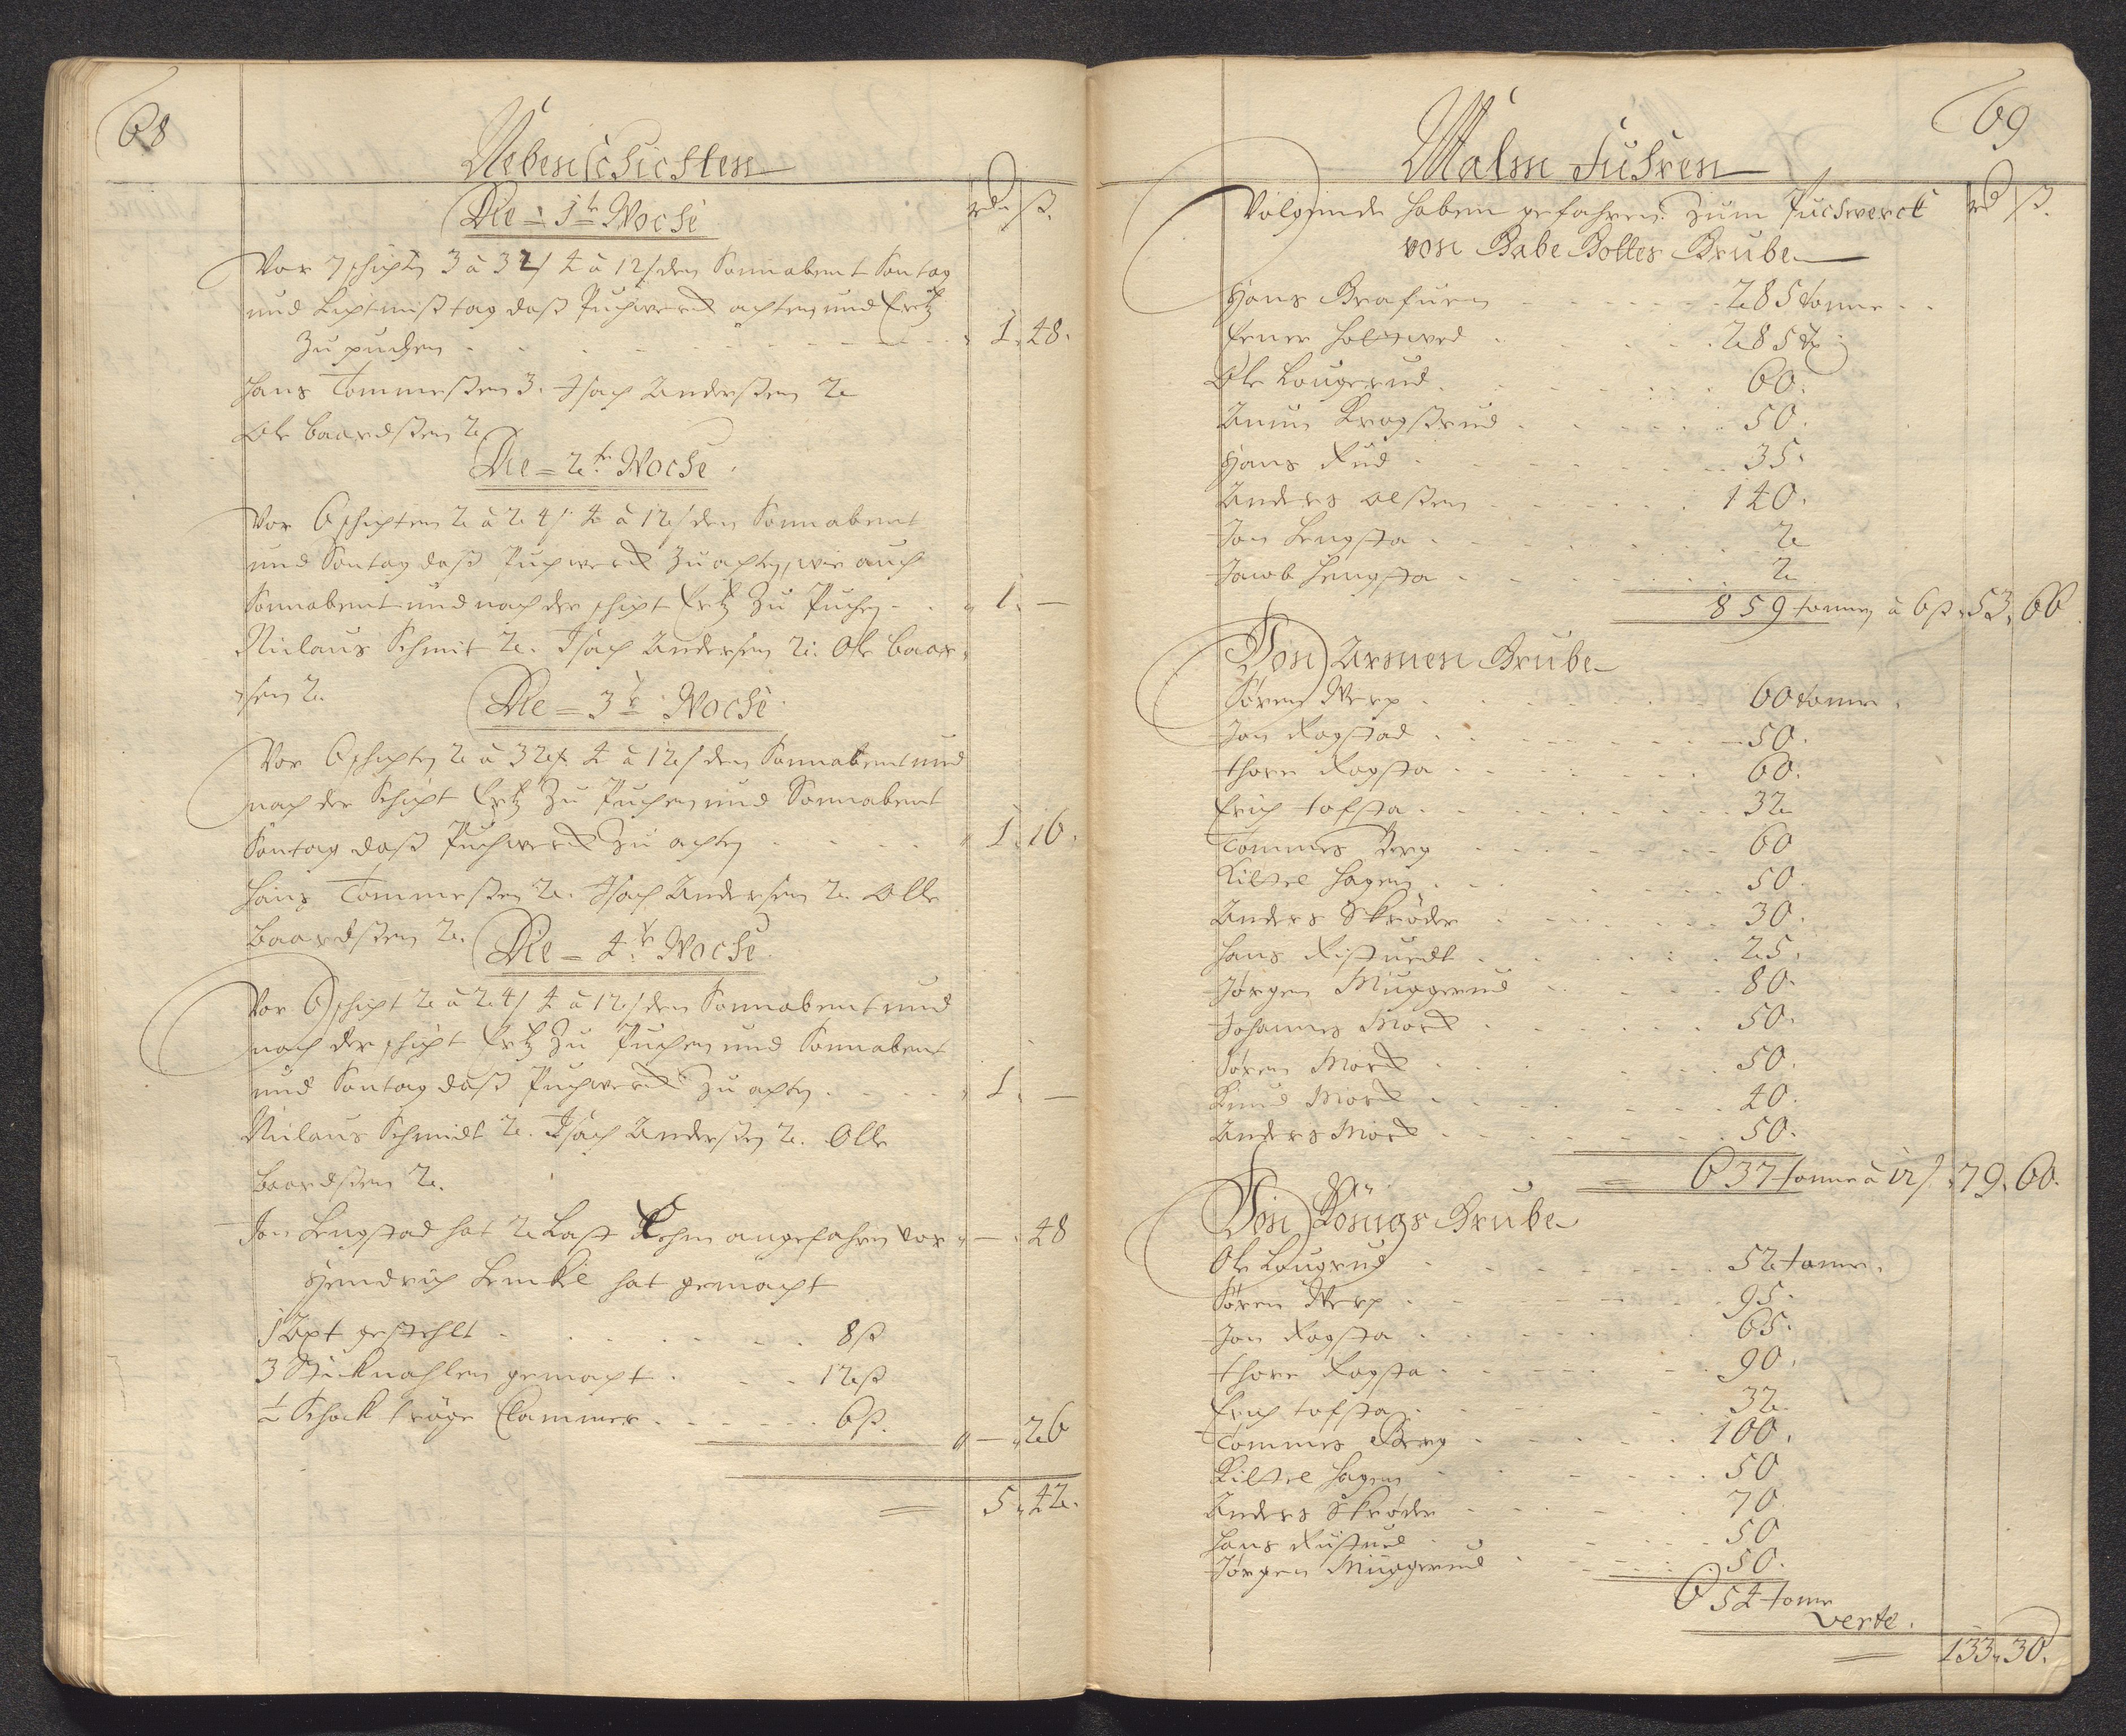 68
Neben schichten
rdr ß.
Die = 1te Woche
Vor 7 schichten 3 â 32/ 4 â 12/ den Sonnabent Sontag
und Lichtmiß tag daß Puchwerck achten und Ertz
Zu puchen 1. 48.
Hans Tommeßen 3. Isach Anderßen 2
Ole Baardßen 2
Die = 2te Woche
Vor 6 schichten 2 â 24/ 4 â 12/ den Sonnabent
und Sontag daß Puchwerck Zu achten, wie auch
Sonnabent und nach der schicht Ertz Zu Puchen 1. —
Niclaus Schmit 2. Isach Andersen 2. Ole Baar-
sen 2.
Die = 3te Woche
Vor 6 schichten 2 â 32/ 4 â 12/ den Sonnabent und
nach der Schicht Ertz Zu Puchen und Sonnabent
Sontag daß Puchwerck Zu achten 1. 16.
Hans Tommeßen 2. Isach Andersen 2. Olle
Baardßen 2.
Die = 4te Woche
Vor 6 schicht 2 â 24/ 4 â 12/ den Sonnabent und
nach der schicht Ertz Zu Puchen und Sonnabent
und Sontag daß Puchwerck Zu achten 1. —
Niclaus Schmidt 2. Isach Anderßen 2. Olle
Baardßen 2.
Jon Lengstad hat 2 Last Lehm angefahren vor — 48
Hendrich Lemkie hat gemacht
1 Axt gestehlt 8 ß
3 Stück nahlen gemacht 12 ß
½ Schock tröge Clammer 6 ß. — 26
= 5. 42.
69
Malm Fuhren
Volgende haben gefahren Zum Puchwerck rd ß.
von Gabe Gottes Grube
Hans Grafuren 285 tonne
Ener Holtzwed 285 t
Ole Lougerud 60.
Amun Krogßrud 50.
Hans Rud 35.
Anders Olßen 140.
Jon Lengsta 2
Jacob Hengsta 2
859 tonnen â 6 ß 53. 66
Von Armen Grube
Sören Werp 60 tonne.
Jon Ragstad 50.
Thore Ragsta 60.
Erich tofsta 32
Tommes Berg 60
Kittel Hagen 50.
Anders Skröder 30.
Hans Ristuedt 25.
Jørgen Muggerud 80.
Johannes Morck 50.
Sören Morck 50.
Knud Morck 40.
Anders Morck 50.
= 637 tonne â 12/ 79. 60.
Von Königs Grube
Ole Lougrud 52 tonne.
Sören Werp 95.
Jon Ragsta 65.
Thore Ragsta 90.
Erich tofsta 32.
Tommes Berg 100.
Kittel Hagen 50
Anders Skröder 70
Hans Rustued 50
Jørgen Muggerud 50.
654 tonne
verte.
= 133. 30.